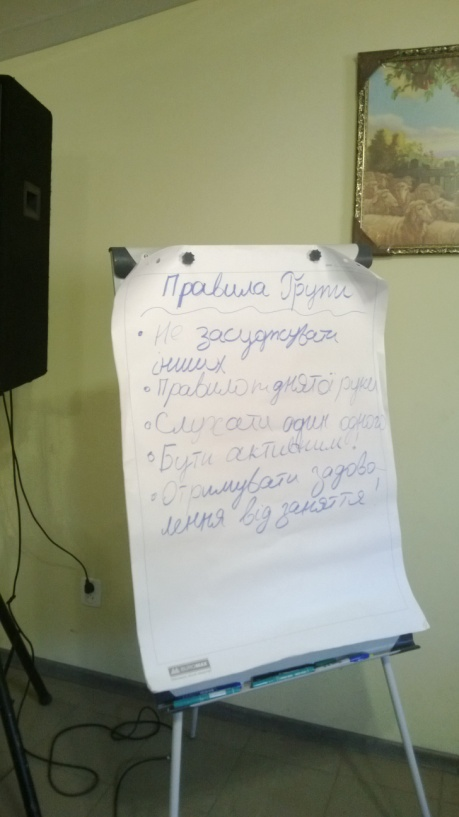 Правила Групи
• Не засуджувати
інших
• Правило піднятої руки
• Слухати один одного
• Бути активним!
• Отримувати задово-
лення від заняття!